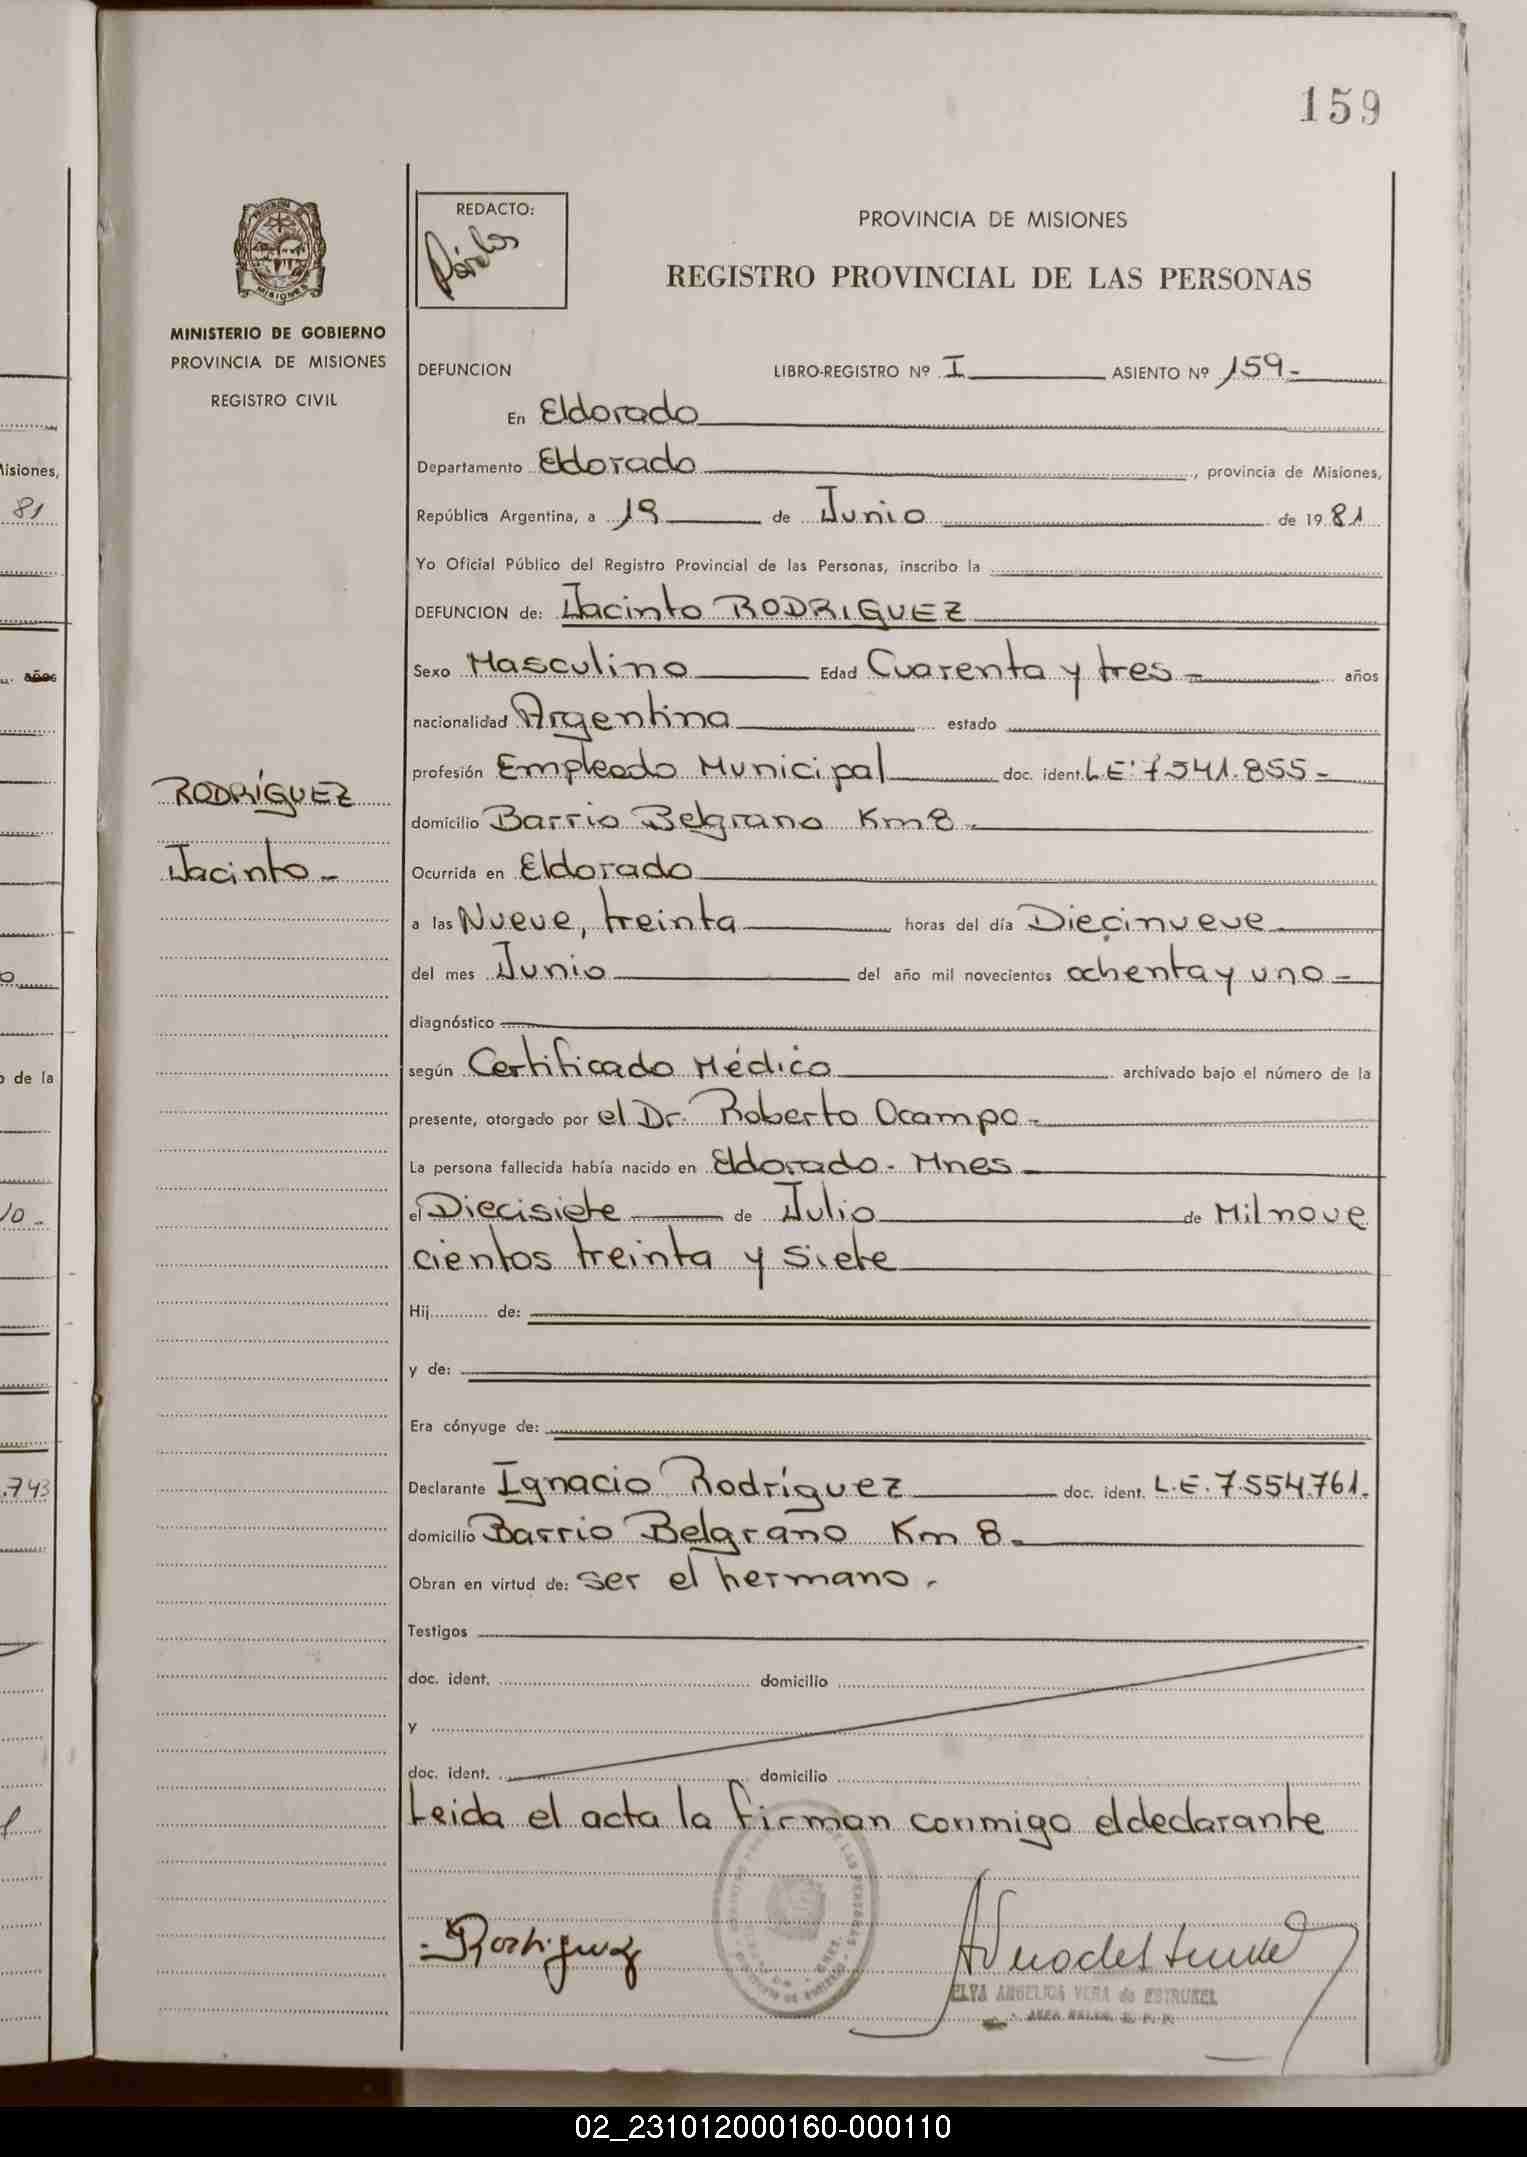 159
PROVINCIA DE MISIONES
REGISTRO PROVINCIAL DE LAS PERSONAS
REDACTO:
MISIONES
MINISTERIO DE GOBIERNO
PROVINCIA DE MISIONES
REGISTRO CIVIL
DEFUNCION LIBRO-REGISTRO Nº I ASIENTO Nº 159-
En Eldorado
Departamento Eldorado, provincia de Misiones,
República Argentina, a 19 de Junio de 1981
Yo Oficial Público del Registro Provincial de las Personas, inscribo la
DEFUNCION de: Jacinto RODRIGUEZ
Sexo Masculino Edad Cuarenta y tres- años
nacionalidad Argentina estado
profesión Empleado Municipal doc. ident. L.E. 7.541.855-
RODRÍGUEZ
Jacinto-
domicilio Barrio Belgrano Km 8-
Ocurrida en Eldorado
a las Nueve, treinta horas del día Diecinueve
del mes Junio del año mil novecientos ochenta y uno-
diagnóstico
según Certificado Médico archivado bajo el número de la
presente, otorgado por el Dr. Roberto Ocampo-
La persona fallecida había nacido en Eldorado- Mnes-
el Diecisiete de Julio de Mil nove
cientos treinta y siete
Hij de:
y de:
Era cónyuge de:
Declarante Ignacio Rodríguez doc. ident. L.E. 7.554.761.
domicilio Barrio Belgrano Km 8-
Obran en virtud de: ser el hermano.
Testigos
doc. ident. domicilio
y
doc. ident. domicilio
Leida el acta la firman conmigo el declarante
Rodriguez
ELVA ANGELICA VERA de ESTRUKEL
Misiones,
81
años
o de la
.743
02_231012000160-000110